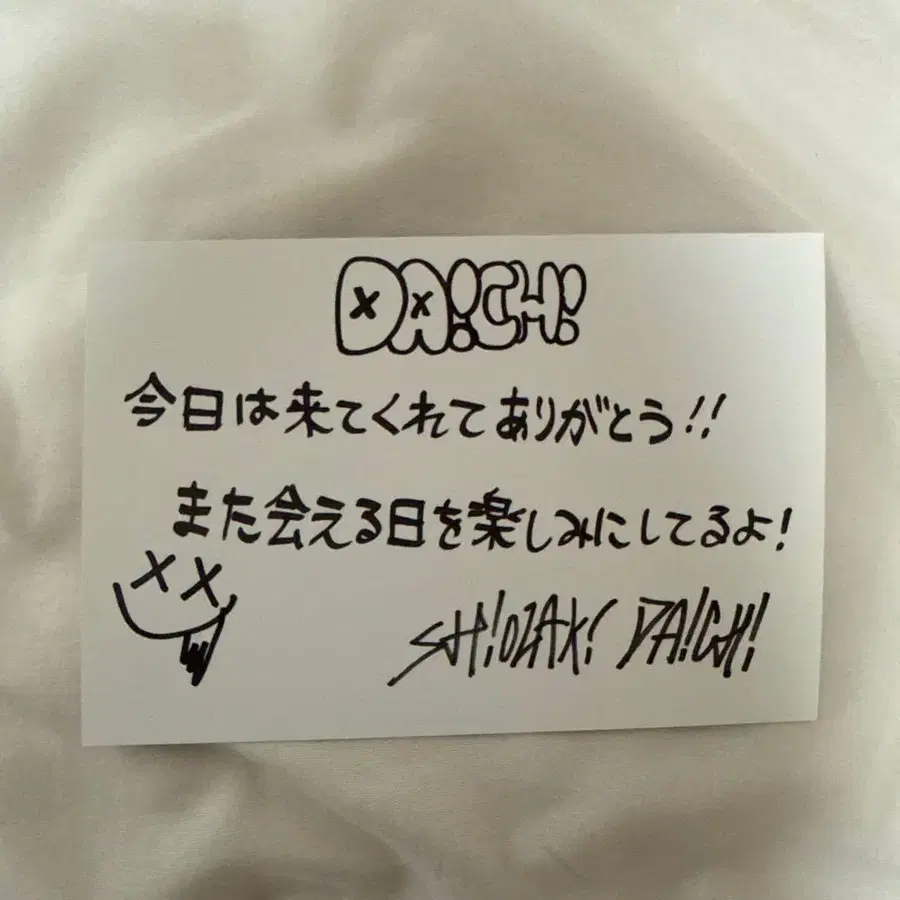 DA!CH!
今日は来てくれてありがとう!!
また会える日を楽しみにしてるよ!
SH!OZAK! DA!CH!